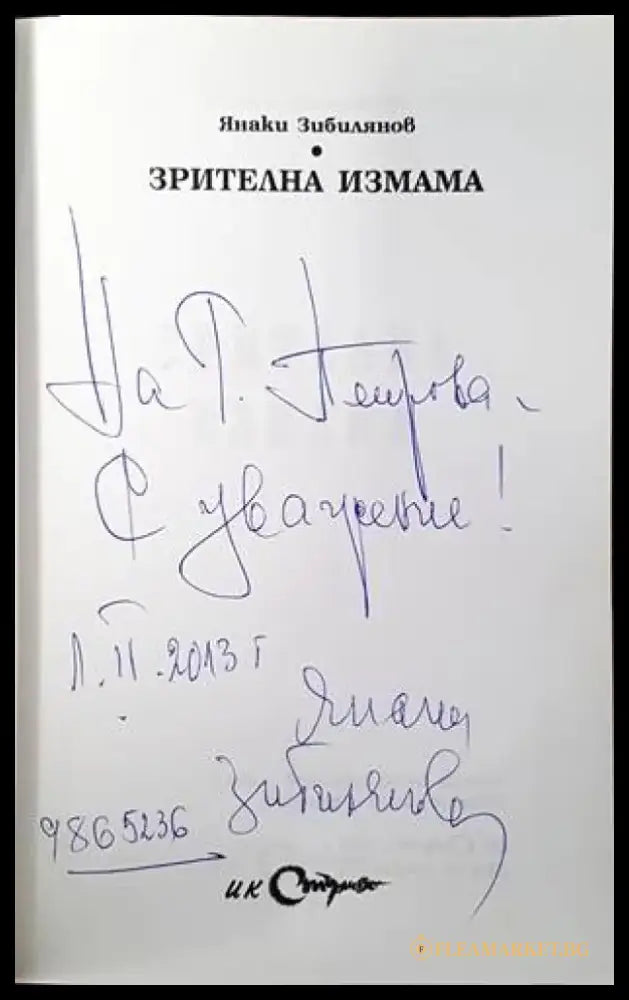 Янаки Зибилянов
•
ЗРИТЕЛНА ИЗМАМА
На Т. Петрова -
С уважение!
1. II. 2013 г
Янаки
Зибилянов
9865236
ИК Стигмати
FLEAMARKET.BG